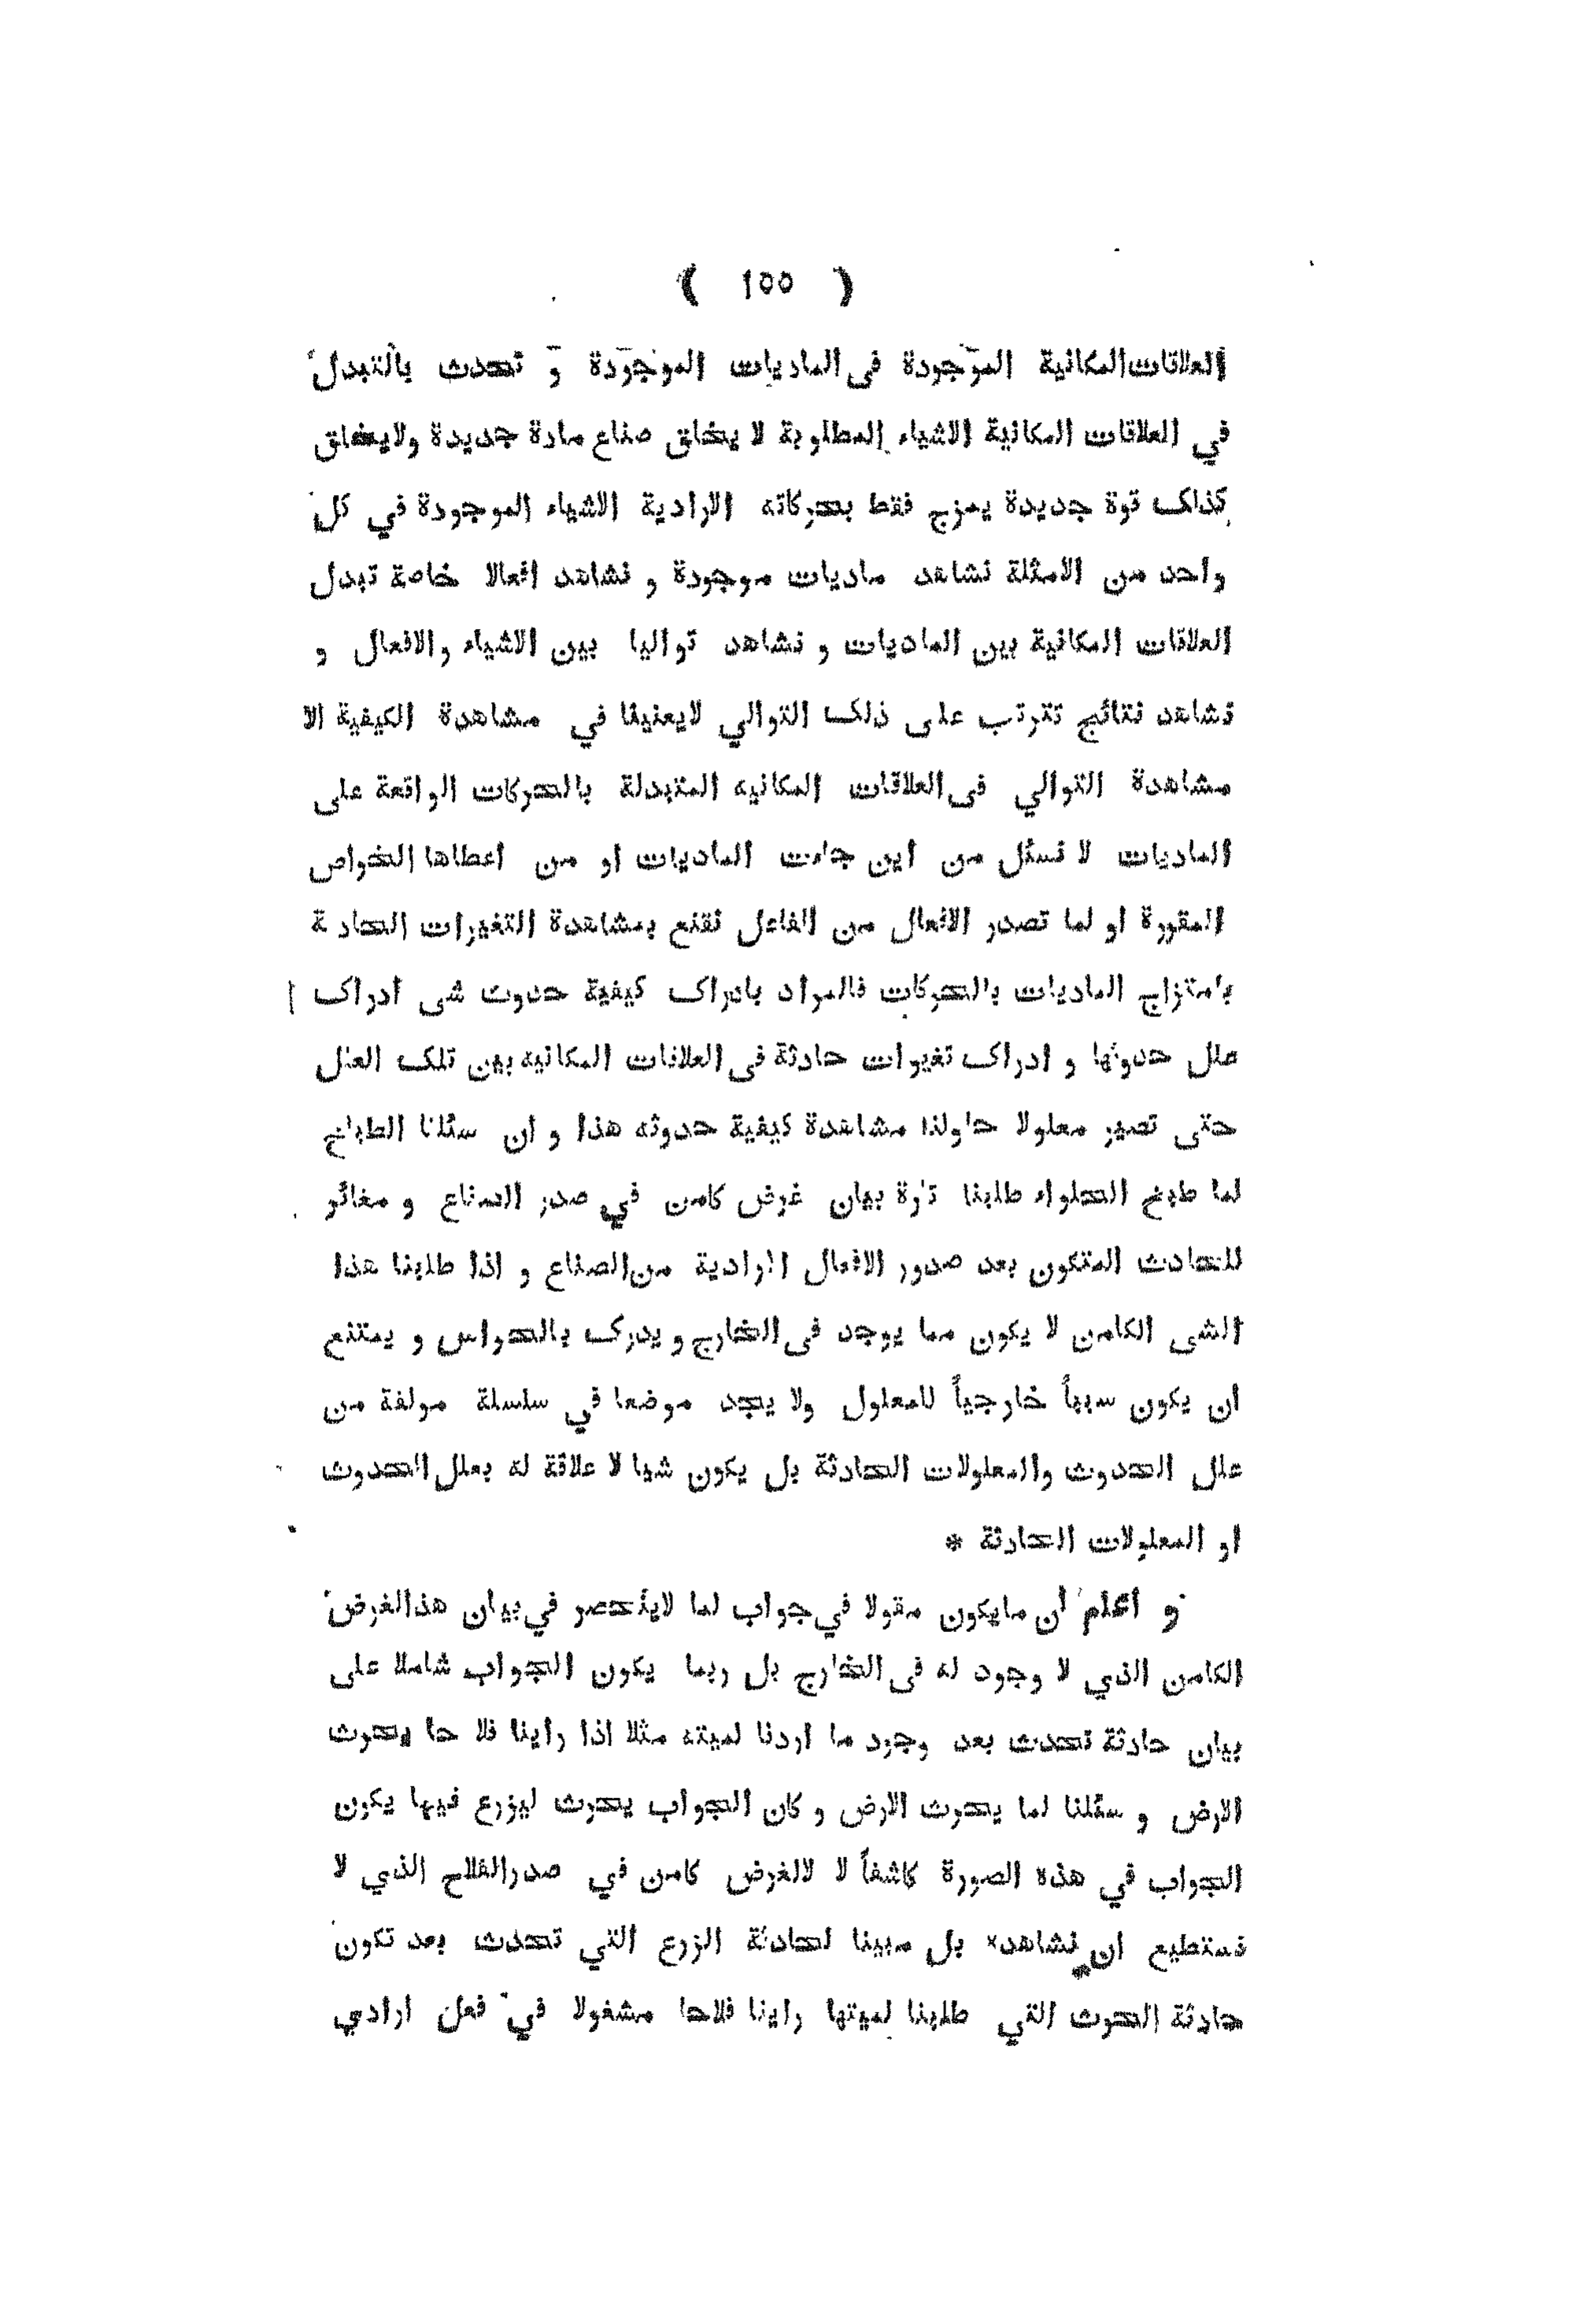 ( ١٥٥ )
العلاقات المكانية الموجودة فى الماديات الموجودة و تحدث بالتبدل
في العلاقات المكانية الاشياء المطلوبة لا يخلق صناع مادة جديدة ولايخلق
كذلك قوة جديدة يمزج فقط بحركاته الارادية الاشياء الموجودة في كل
واحد من الامثلة نشاهد ماديات موجودة و نشاهد افعالا خاصة تبدل
العلاقات المكانية بين الماديات و نشاهد تواليا بين الاشياء والافعال و
نشاهد نتائج تترتب على ذلك التوالي لايعنينا في مشاهدة الكيفية الا
مشاهدة التوالي فى العلاقات المكانيه المتبدلة بالحركات الواقعة على
الماديات لا نسئل من اين جاءت الماديات او من اعطاها الخواص
المقررة او لما تصدر الافعال من الفاعل نقنع بمشاهدة التغيرات الحادثة
بامتزاج الماديات بالحركات فالمراد بادراك كيفية حدوث شى ادراك
علل حدوثها و ادراك تغيرات حادثة فى العلاقات المكانيه بين تلك العلل
حتى تصير معلولا حاولنا مشاهدة كيفية حدوثه هذا و ان سئلنا الطباخ
لما طبخ الحلواء طلبنا تارة بيان غرض كامن في صدر الصناع و مغائر
للحادث المتكون بعد صدور الافعال الارادية من الصناع و اذا طلبنا هذا
الشى الكامن لا يكون مما يوجد فى الخارج و يدرك بالحواس و يمتنع
ان يكون سبباً خارجياً للمعلول ولا يجد موضعا في سلسلة مولفة من
علل الحدوث والمعلولات الحادثة بل يكون شيا لا علاقة له بعلل الحدوث
او المعلولات الحادثة *
و اعلم ان مايكون مقولا في جواب لما لاينحصر في بيان هذالغرض
الكامن الذي لا وجود له فى الخارج بل ربما يكون الجواب شاملا على
بيان حادثة تحدث بعد وجود ما اردنا لميته مثلا اذا راينا فلا حا يحرث
الارض و سئلنا لما يحرث الارض و كان الجواب يحرث ليزرع فيها يكون
الجواب في هذه الصورة كاشفاً لا لالغرض كامن في صدرالفلاح الذي لا
نستطيع ان نشاهده بل مبينا لحادثة الزرع التي تحدث بعد تكون
حادثة الحرث التي طلبنا لميتها راينا فلاحا مشغولا في فعل ارادي